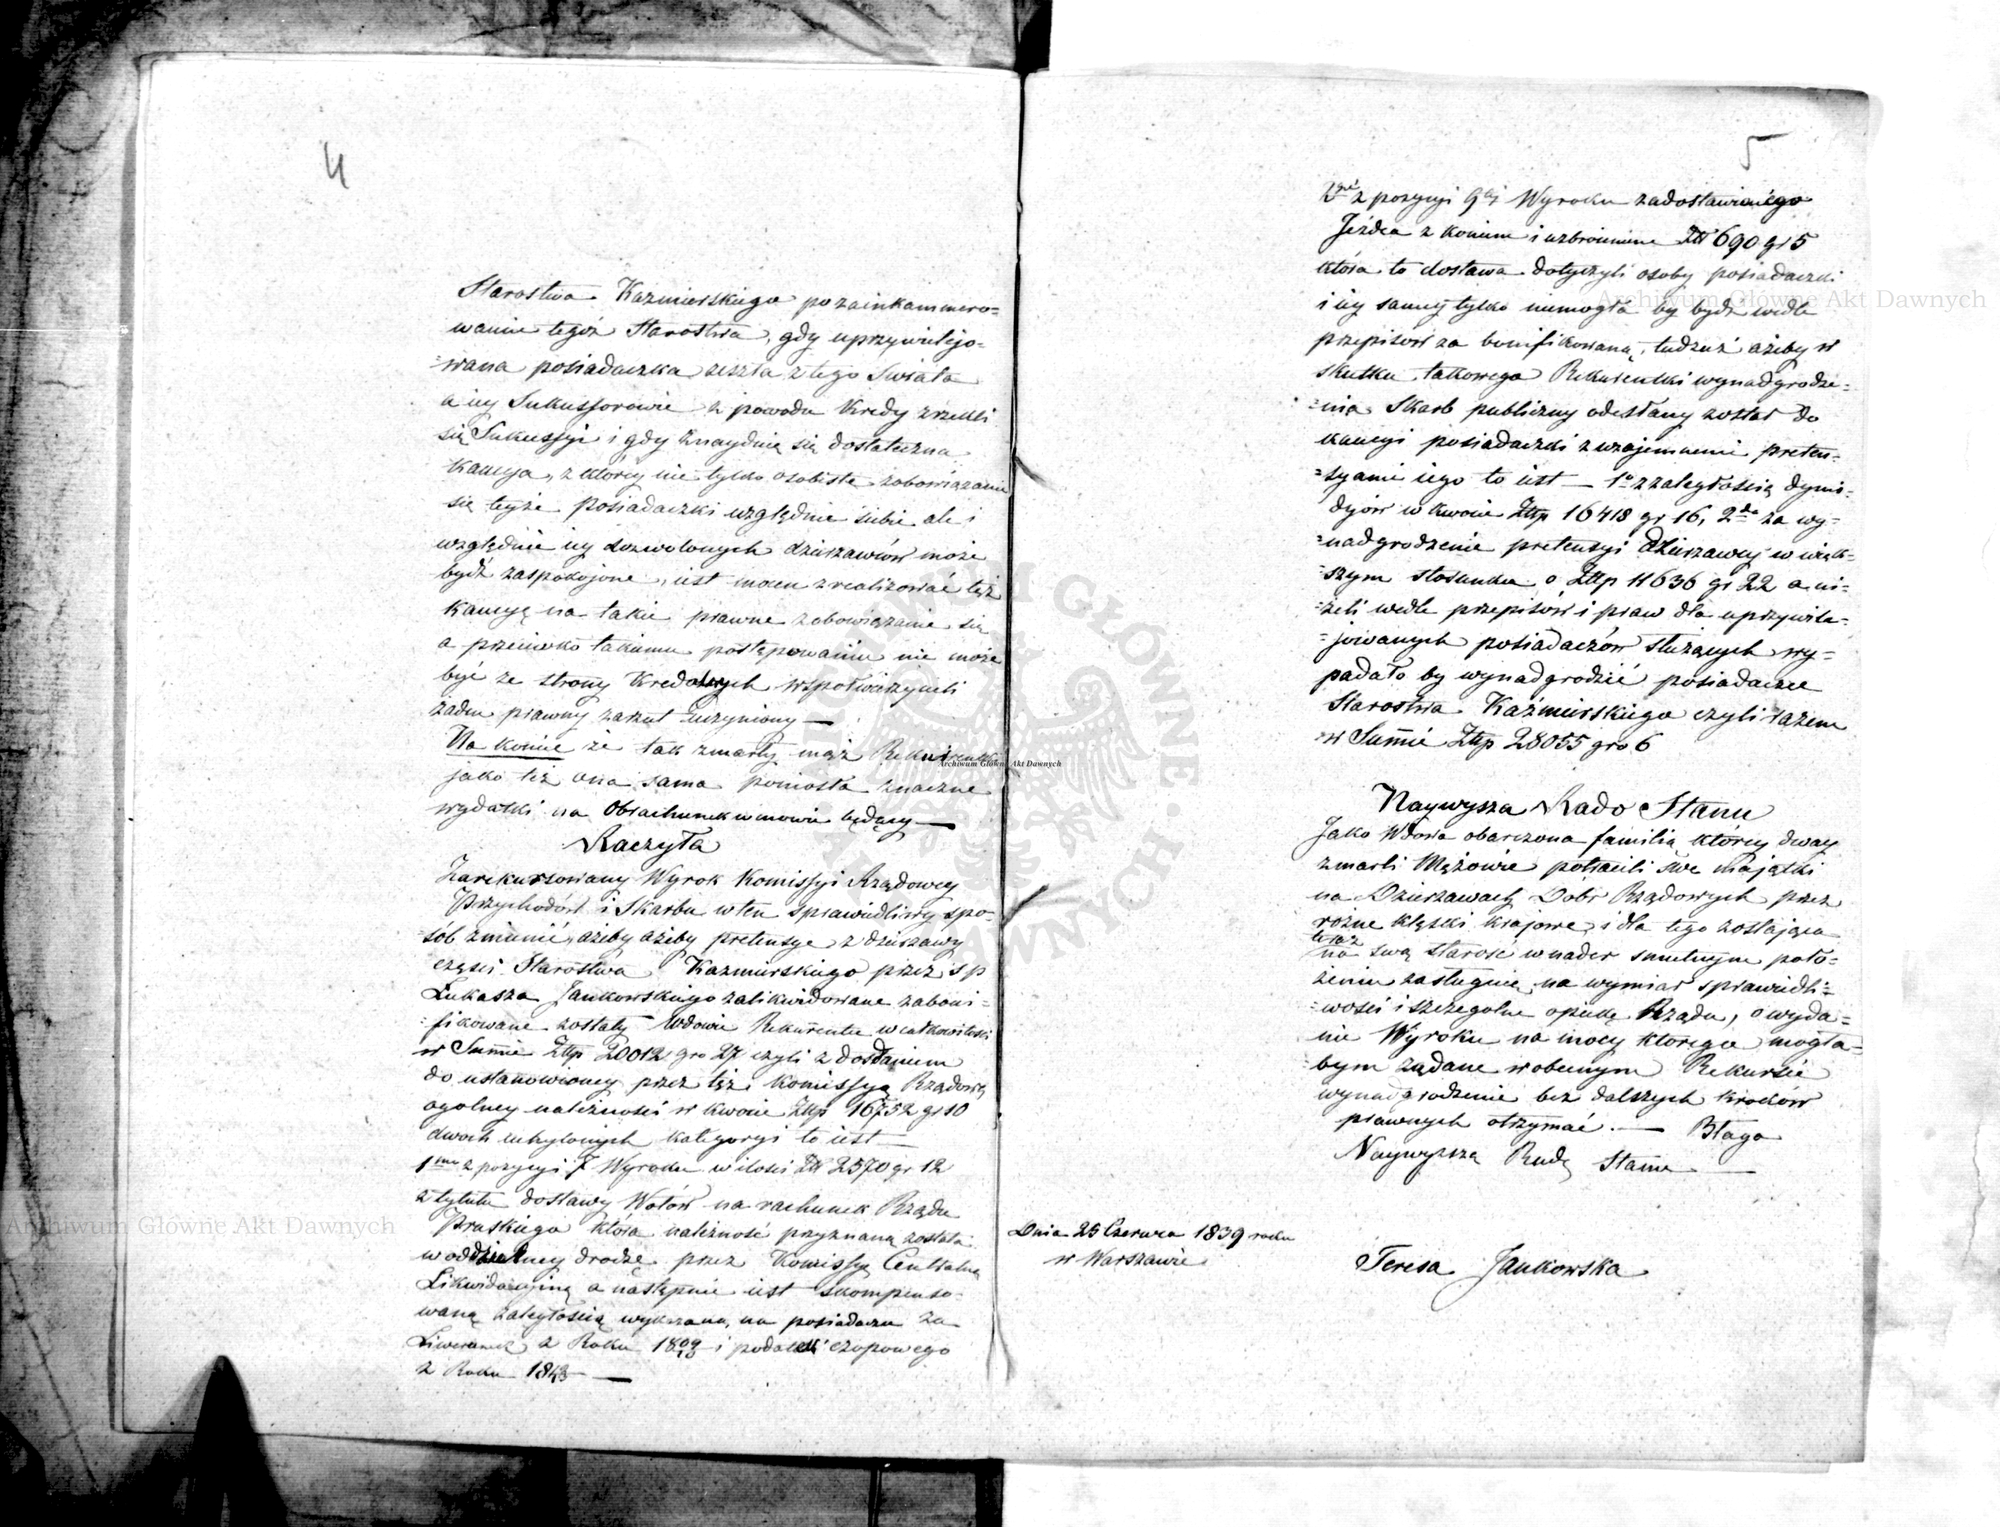 4
Starostwa Kazmierskiego po zainkammero=
waniu tegoż Starostwa, gdy uprzywilejo=
=wana posiadaczka zeszła z tego Swiata
a iey Sukussorowie z powodu Kredy zrzekli
się Sukussyi i gdy znayduie się dostateczna
Kaucya, z którey nie tylko osobiste zobowiązanie
się teyże posiadaczki względnie siebie ale i
względnie iey dozwolonych dzierzawców może
bydź zaspokojone, iest mocen zrealizować tęż
Kaucyę na takie prawne zobowiązanie się
a przeciwko takiemu postępowaniu nie może
być ze strony Kredalnych wspołwierzycieli
żaden prawny zarzut uczyniony —
Na koniec że tak zmarły mąż Rekurentki
jako też ona sama poniosła znaczne
wydatki na Obrachunek w mowie będący —
Raczyła
Zarekursowany Wyrok Kommissyi Rządowey
Przychodów i Skarbu w ten sprawiedliwy spo=
sób zmienić, ażeby ażeby pretensye z dzierzawy
części Starostwa Kazmierskiego przez s p
Łukasza Jankowskiego zalikwidowane zaboni=
=fikowane zostały Wdowie Rekurentce w całkowitości
w Summie Złtp 20012 gro 27 czyli z dodaniem
do ustanowioney przez tęż Komissyą Rządową
ogolney należności w kwocie Złtp 16752 gr 10
dwoch uchylonych kategoryi to iest —
1mo z pozycyi 7 Wyroku w ilości Złt 2570 gr 12
z tytułu dostawy Wołów na rachunek Rządu
Pruskiego która należność przyznaną została
w oddzielney drodze przez Komissyą Centralną
Likwidacyiną a następnie iest skompenso=
waną zaległością wykazaną na posiadaczu za
Liwerunek z Roku 1809/10 i podatek czopowego
z Roku 1813 —
5
2re z pozycyi 9tej Wyroku za dostawionego
Jeźdca z koniem i uzbroieniem Złt 690 gr 5
która to dostawa dotyczyła osoby posiadaczki
i iey samey tylko niemogła by bydź wedle
przepisow za bonifikowaną, tudzież ażeby w
skutku takowego Rekurentki wynadgrodze=
=nia Skarb publiczny odesłany został do
kaucyi posiadaczki z wzajemnemi preten=
=syami iego to iest — 1o z zaległością dymi=
=dyów w kwocie Złtp 16418 gr 16, 2do za wy=
=nadgrodzenie pretensyi dzierzawcy w więk=
=szym stosunku o Złtp 11636 gr 22 a ni=
=żeli wedle przepisów i praw dla uprzywile=
=jowanych posiadaczów służących wy=
padało by wynadgrodzić posiadaczce
Starostwa Kaźmierskiego czyli razem
w Summie Złtp 28055 gro 6
Naywyzsza Rado Stanu
Jako Wdowa obarczona familią którey dway
zmarli Mężowie potracili swe majątki
na Dzierzawach Dobr Rządowych przez
rożne klęski krajowe, i dla tego zostająca
teraz
na swą starość w nader smutnym poło=
żeniu zasługuię na wymiar sprawiedli=
=wości i szczegolne opiekę Rządu, o wyda=
nie Wyroku na mocy ktorego mogła=
bym żądane w obecnym Rekursie
wynadgrodzenie bez dalszych kroków
prawnych otrzymać. — Błaga
Naywyzszą Radę Stanu —
Dnia 25 Czerwca 1839 roku
w Warszawie
Teresa Jankowska
Archiwum Główne Akt Dawnych
Archiwum Główne Akt Dawnych
Archiwum Główne Akt Dawnych
ARCHIWUM GŁÓWNE AKT DAWNYCH